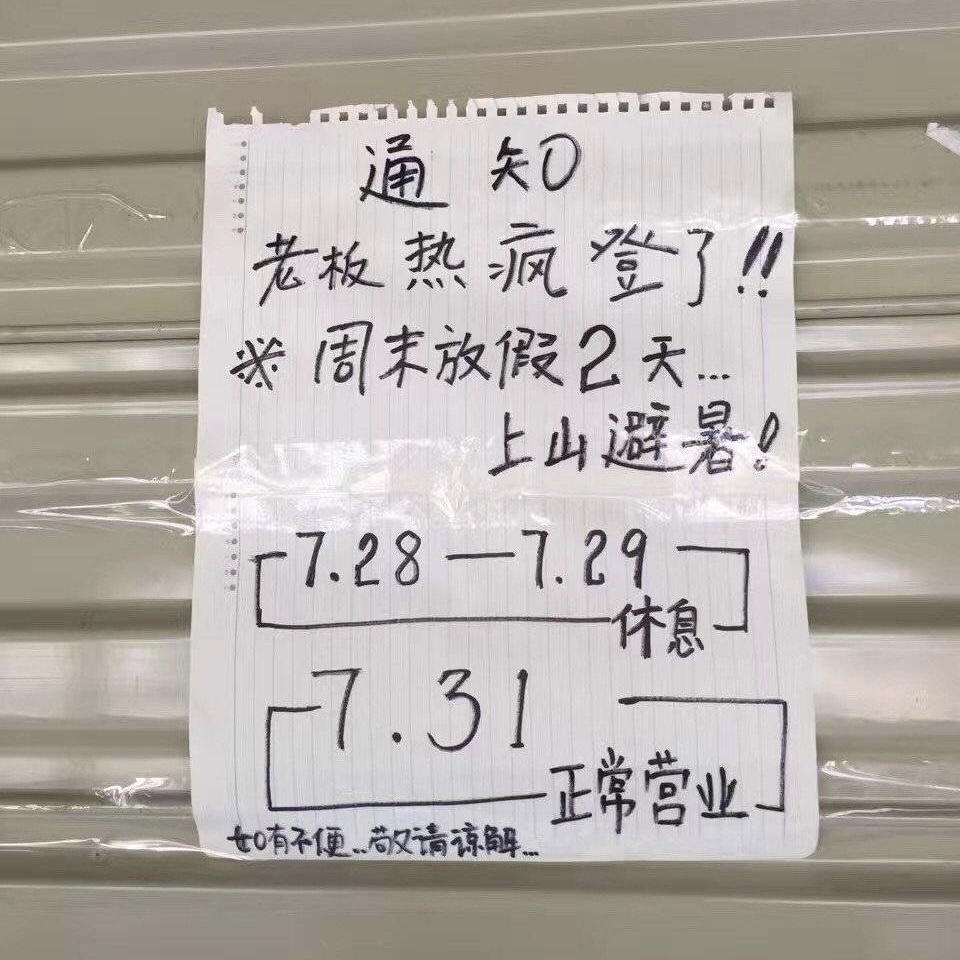 通知
老板热疯登了!!
※周末放假2天...
上山避暑!
7.28—7.29
休息
7.31
正常营业
如有不便...敬请谅解...